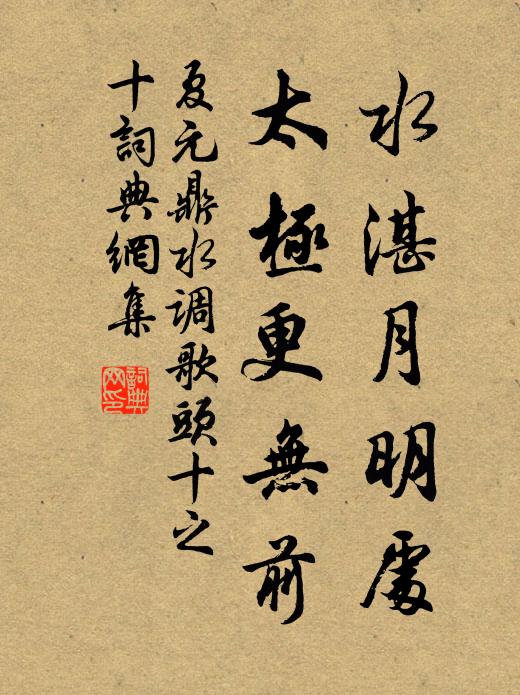 水湛月明處
太極更無前
夏元鼎水调歌頭十之
十詞典網集
詞典
网印